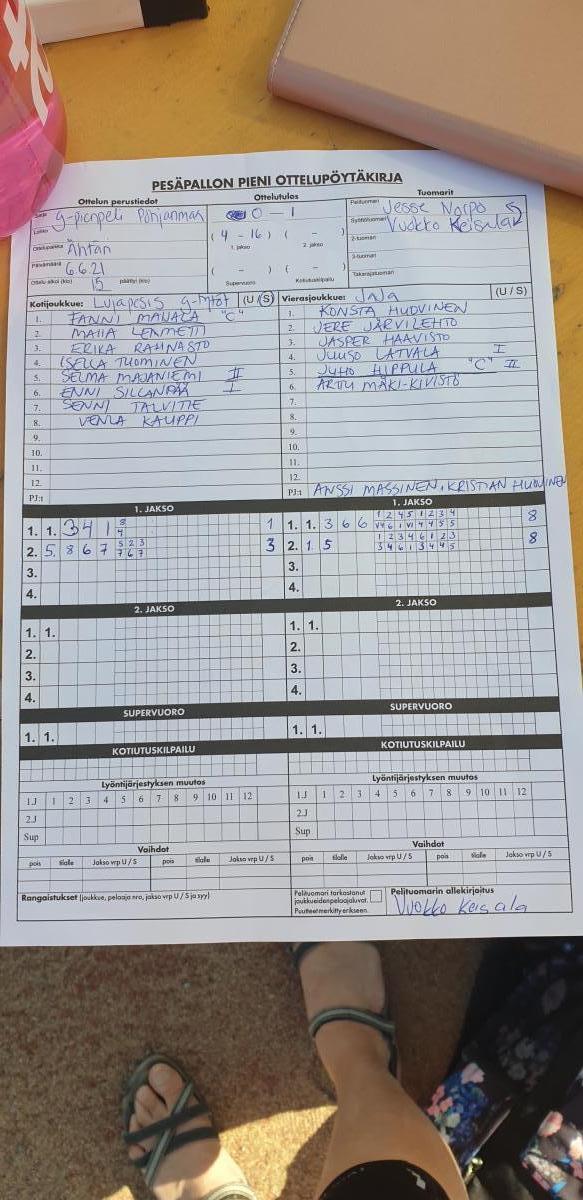 PESÄPALLON PIENI OTTELUPÖYTÄKIRJA
Ottelun perustiedot Ottelutulos Tuomarit
Sarja g-pienpeli Pohjanmaa
0 - 1
Pelituomari Jesse Norpo
Lohko
(4 - 16) ( - )
Syöttötuomari Vuokko Keisala
Ottelupaikka Ähtäri
1. jakso 2. jakso
2-tuomari
Päivämäärä 6 6 21
3-tuomari
( - ) ( - )
Ottelu alkoi (klo) 15 päättyi (klo)
Supervuoro Kotiutuskilpailu
Takarajatuomari
Kotijoukkue: Lujapesis g-tytöt (U/S) Vierasjoukkue: JnJa (U / S)
1. FANNI MANALA "C" 1. KONSTA HUOVINEN
2. MAIJA LENMETTI 2. JERE JÄRVILEHTO
3. ERIKA RAHNASTO 3. JASPER HAAVISTO
4. ISELLA TUOMINEN 4. JUUSO LATVALA I
5. SELMA MAJANIEMI II 5. JUHO HIPPULA "C" II
6. ENNI SILLANPÄÄ I 6. ARTU MÄKI-KIVISTÖ
7. SENNI TALVITIE 7.
8. VENLA KAUPPI 8.
9. 9.
10. 10.
11. 11.
12. 12.
PJ:t PJ:t ANSSI MASSINEN, KRISTIAN HUOVINEN
1. JAKSO 1. JAKSO
1. 1. 3 4 1 8 4 1 1. 1. 3 6 6 1 2 4 5 1 2 3 4 8
2. 5 8 6 7 5 2 3 7 6 7 3 2. 1 5 1 2 3 4 6 1 2 3 3 4 6 1 3 4 4 5 8
3. 3.
4. 4.
2. JAKSO 2. JAKSO
1. 1. 1. 1.
2. 2.
3. 3.
4. 4.
SUPERVUORO SUPERVUORO
1. 1. 1. 1.
KOTIUTUSKILPAILU KOTIUTUSKILPAILU
Lyöntijärjestyksen muutos Lyöntijärjestyksen muutos
1.J 1 2 3 4 5 6 7 8 9 10 11 12 1.J 1 2 3 4 5 6 7 8 9 10 11 12
2.J 2.J
Sup Sup
Vaihdot Vaihdot
pois tilalle Jakso vrp U / S pois tilalle Jakso vrp U / S pois tilalle Jakso vrp U / S pois tilalle Jakso vrp U / S
Rangaistukset (joukkue, pelaaja nro, jakso vrp U / S ja syy)
Pelituomari tarkastanut joukkueiden pelaajaluvat.
Puutteet merkitty erikseen.
Pelituomarin allekirjoitus
Vuokko Keisala